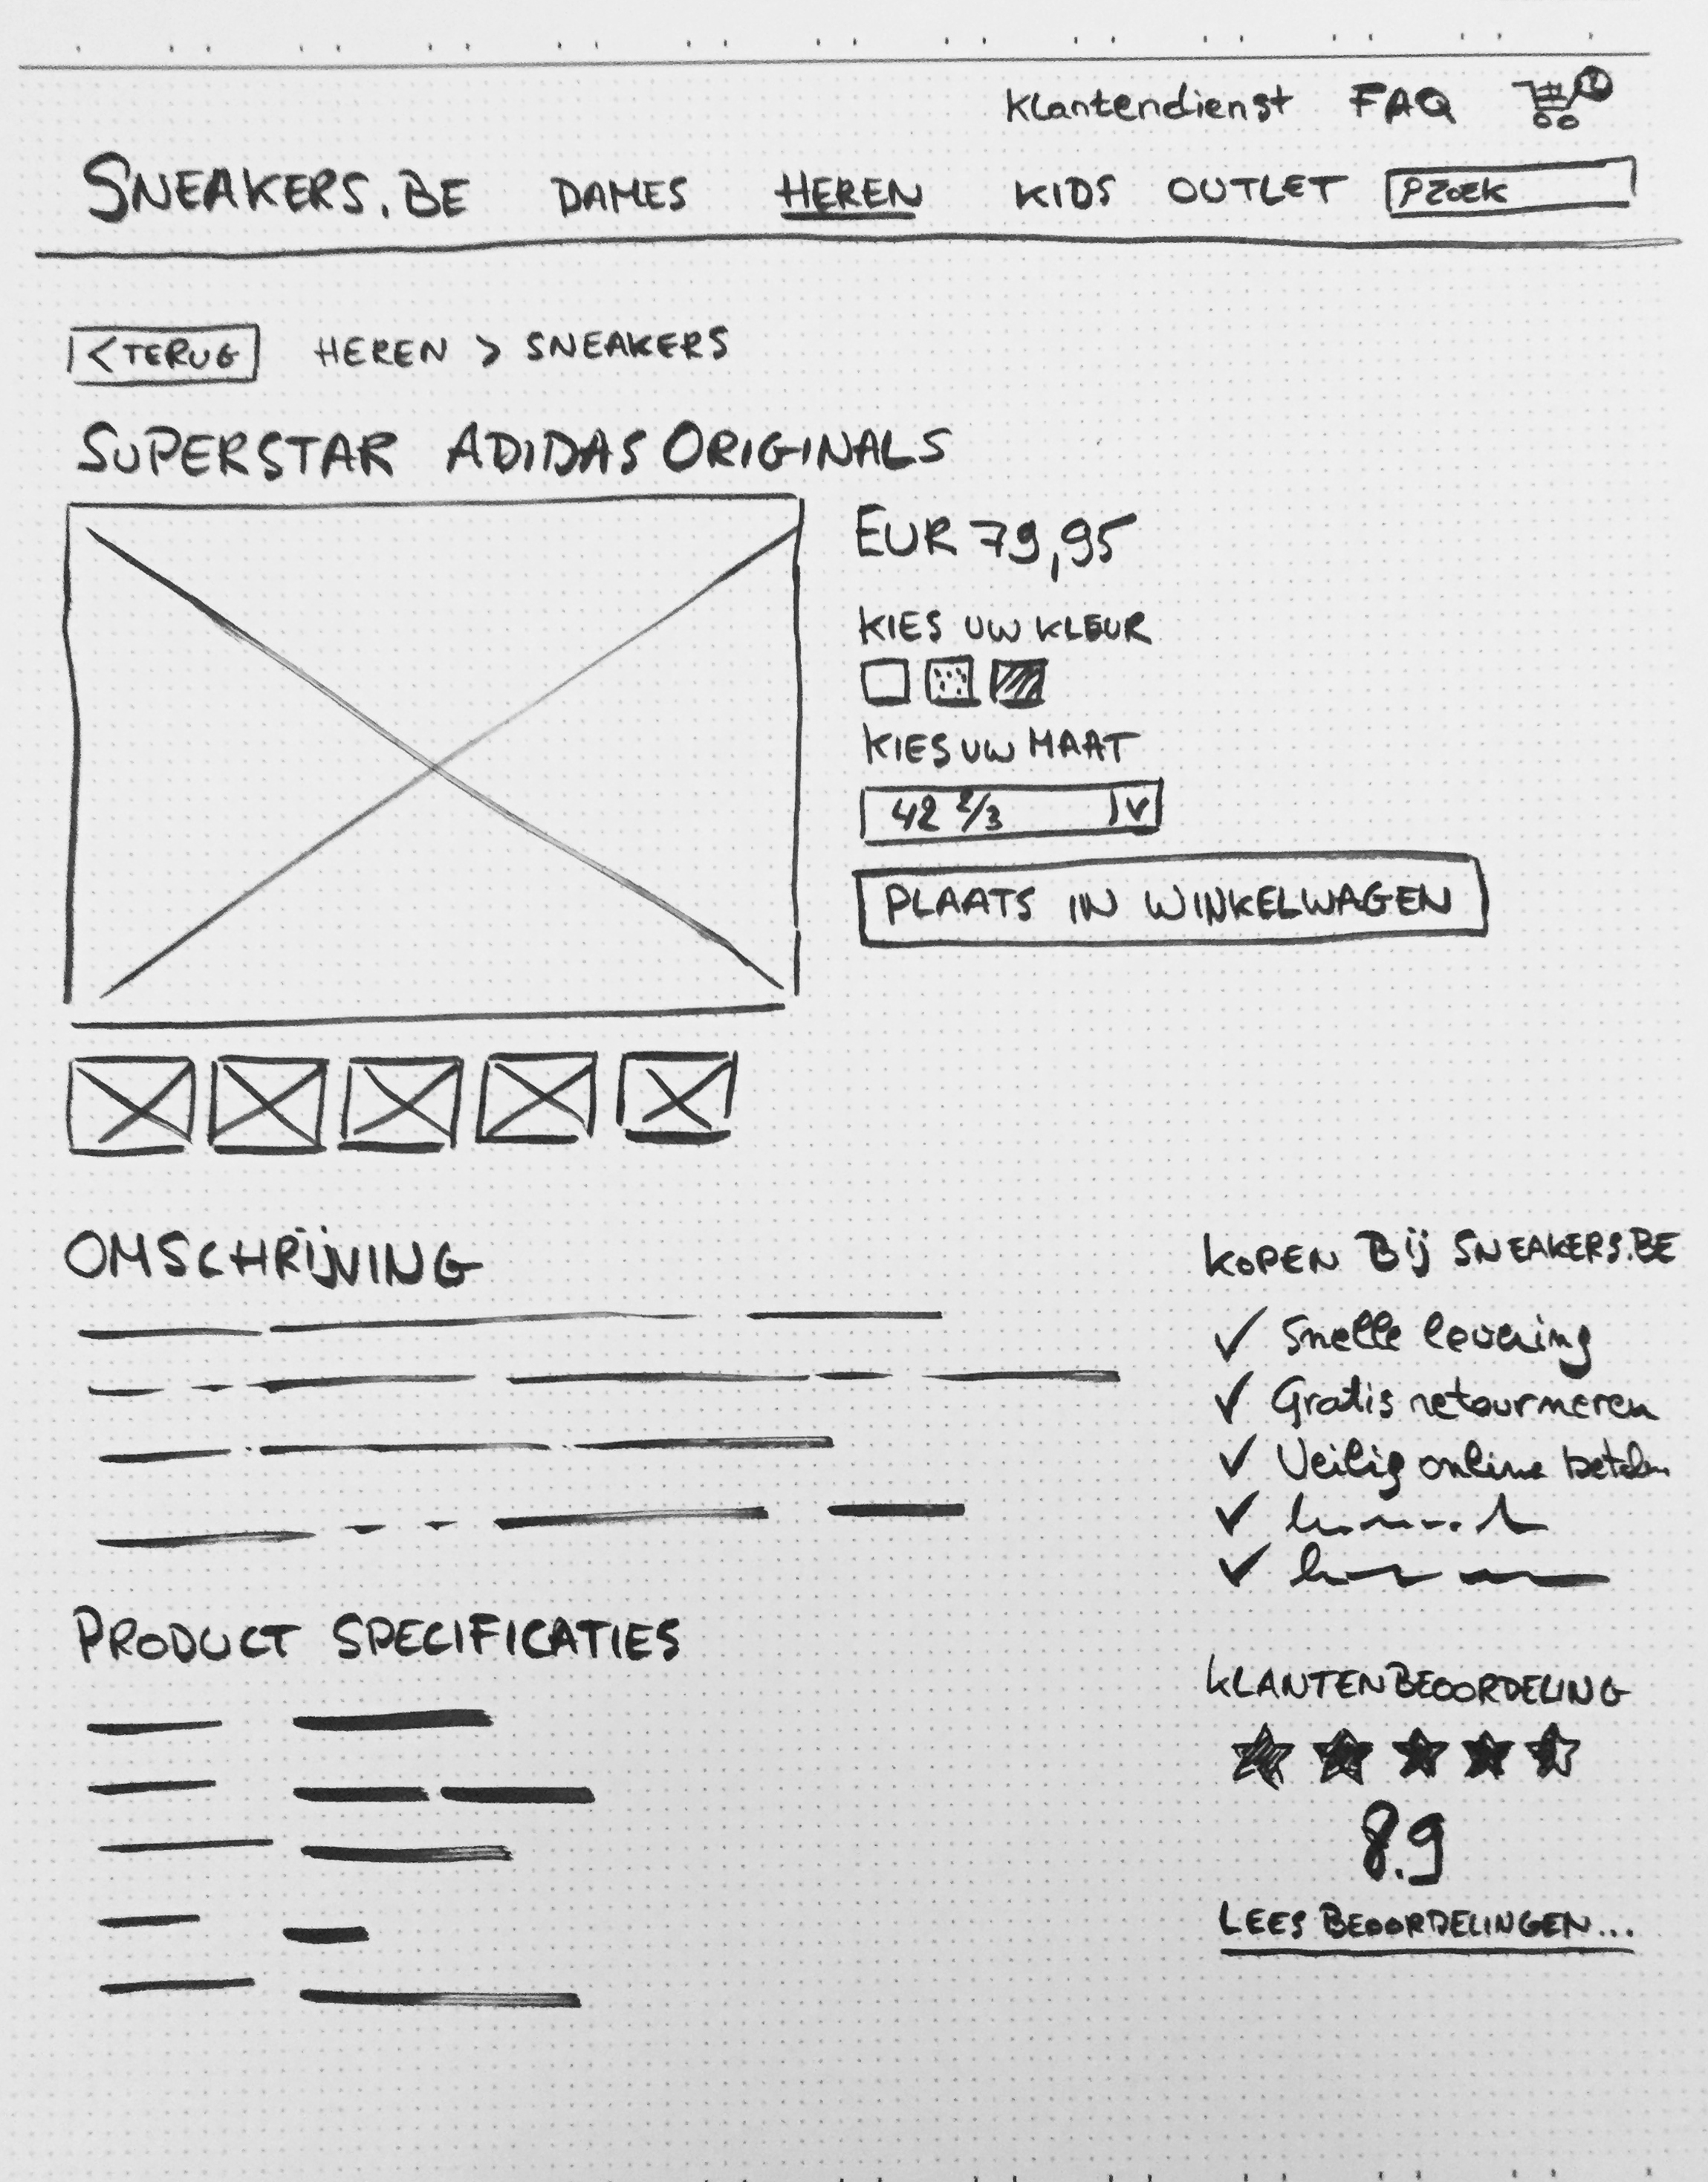 Klantendienst FAQ
SNEAKERS.BE DAMES HEREN KIDS OUTLET ZOEK
< TERUG HEREN > SNEAKERS
SUPERSTAR ADIDAS ORIGINALS
EUR 79,95
KIES UW KLEUR
KIES UW MAAT
42 2/3
PLAATS IN WINKELWAGEN
OMSCHRIJVING
KOPEN Bij SNEAKERS.BE
✓ Snelle levering
✓ Gratis retourneren
✓ Veilig online betalen
PRODUCT SPECIFICATIES
KLANTENBEOORDELING
8.9
LEES BEOORDELINGEN...